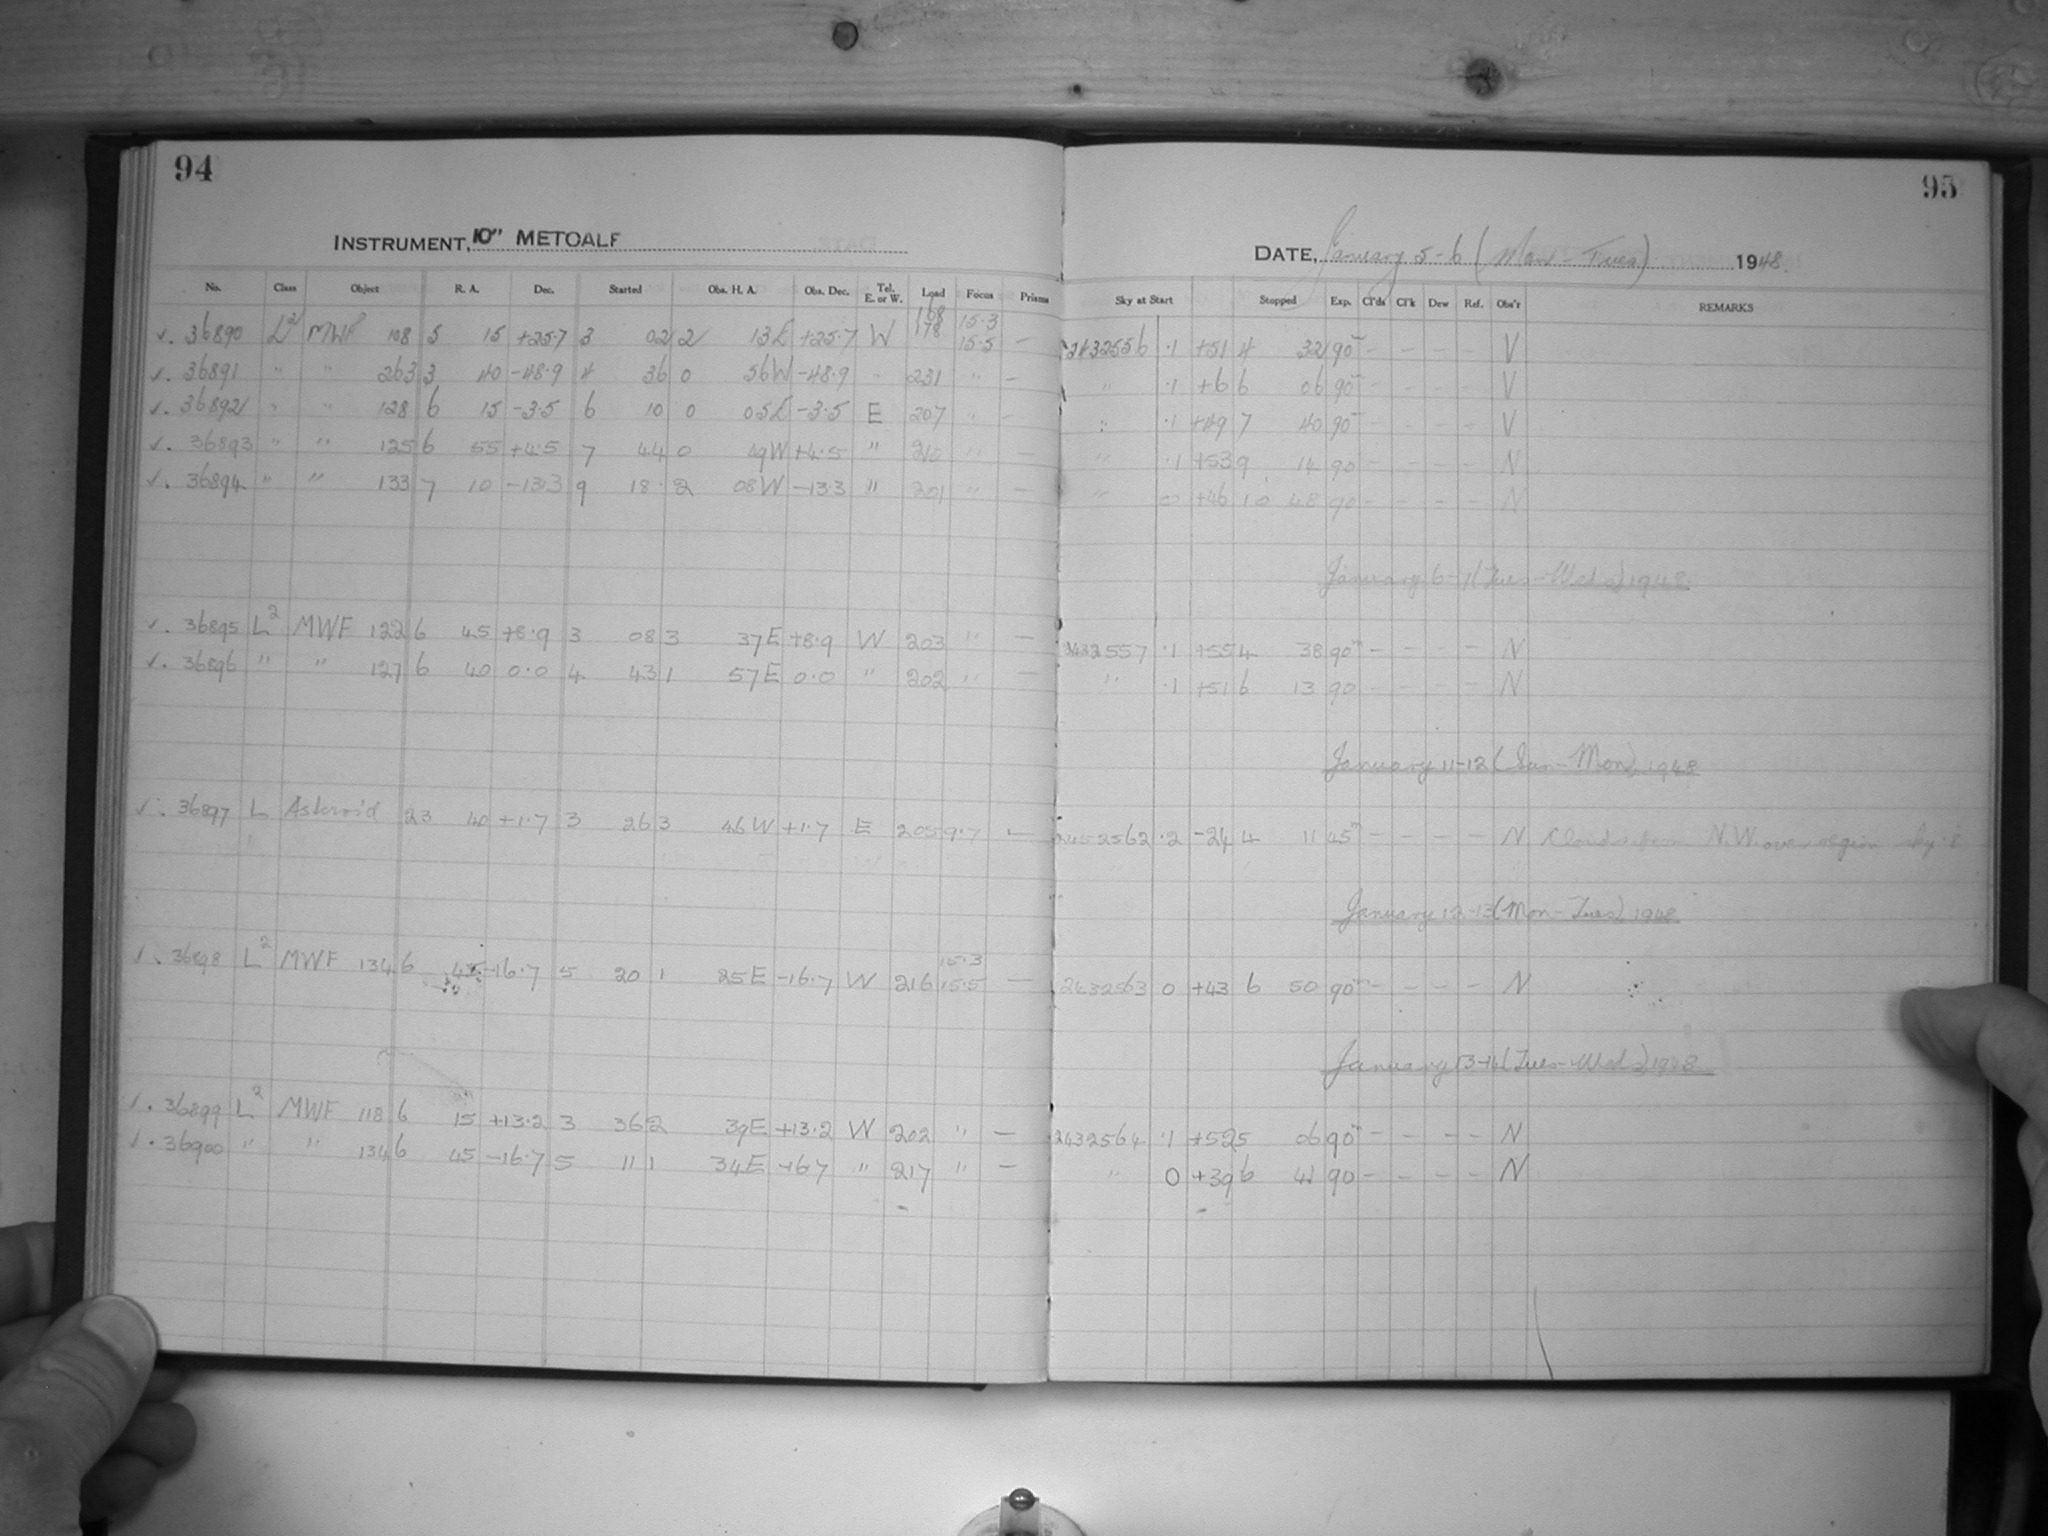 94
95
INSTRUMENT, 10" METCALF
DATE, January 5-6 (Mon-Tues) 1948.
No. Class Object R. A. Dec. Started Obs. H. A. Obs. Dec. Tel. E. or W. Load Focus Prisms Sky at Start Stopped Exp. Cl'ds Cl'k Dew Ref. Obs'r REMARKS
√. 36890 L² MWF 108 5 15 +25.7 3 02 2 13E +25.7 W 178 15.3 15.5 — 2432556 .1 +51 4 32 90ᵐ - - - - V
√. 36891 " " 263 3 40 -48.9 4 36 0 56W -48.9 " 231 " — " .1 +6 6 06 90ᵐ - - - - V
√. 36892 " " 128 6 15 -3.5 6 10 0 05E -3.5 E 207 " — " .1 +49 7 40 90ᵐ - - - - V
√. 36893 " " 125 6 55 +4.5 7 44 0 49W +4.5 " 210 " — " .1 +53 9 14 90 - - - - N
√. 36894 " " 133 7 10 -13.3 9 18 2 08W -13.3 " 201 " — " 0 +46 10 48 90 - - - - N
January 6-7 (Tues-Wed) 1948
√. 36895 L² MWF 122 6 45 +8.9 3 08 3 37E +8.9 W 203 " — 2432557 .1 +55 4 38 90ᵐ - - - - N
√. 36896 " " 127 6 40 0.0 4 43 1 57E 0.0 " 202 " — " .1 +51 6 13 90 - - - - N
January 11-12 (Sun-Mon) 1948
√. 36897 L Asteroid 23 40 +1.7 3 26 3 46W +1.7 E 205 9.7 — 2432562 .2 -24 4 11 45ᵐ - - - - N Clouds from N.W. over region
January 12-13 (Mon-Tues) 1948
√. 36898 L² MWF 134 6 45 -16.7 5 20 1 25E -16.7 W 216 15.3 15.5 — 2432563 0 +43 6 50 90ᵐ - - - - N
January 13-14 (Tues-Wed) 1948
√. 36899 L² MWF 118 6 15 +13.2 3 36 2 39E +13.2 W 202 " — 2432564 .1 +52 5 06 90ᵐ - - - - N
√. 36900 " " 134 6 45 -16.7 5 11 1 34E -16.7 " 217 " — " 0 +39 6 41 90 - - - - N